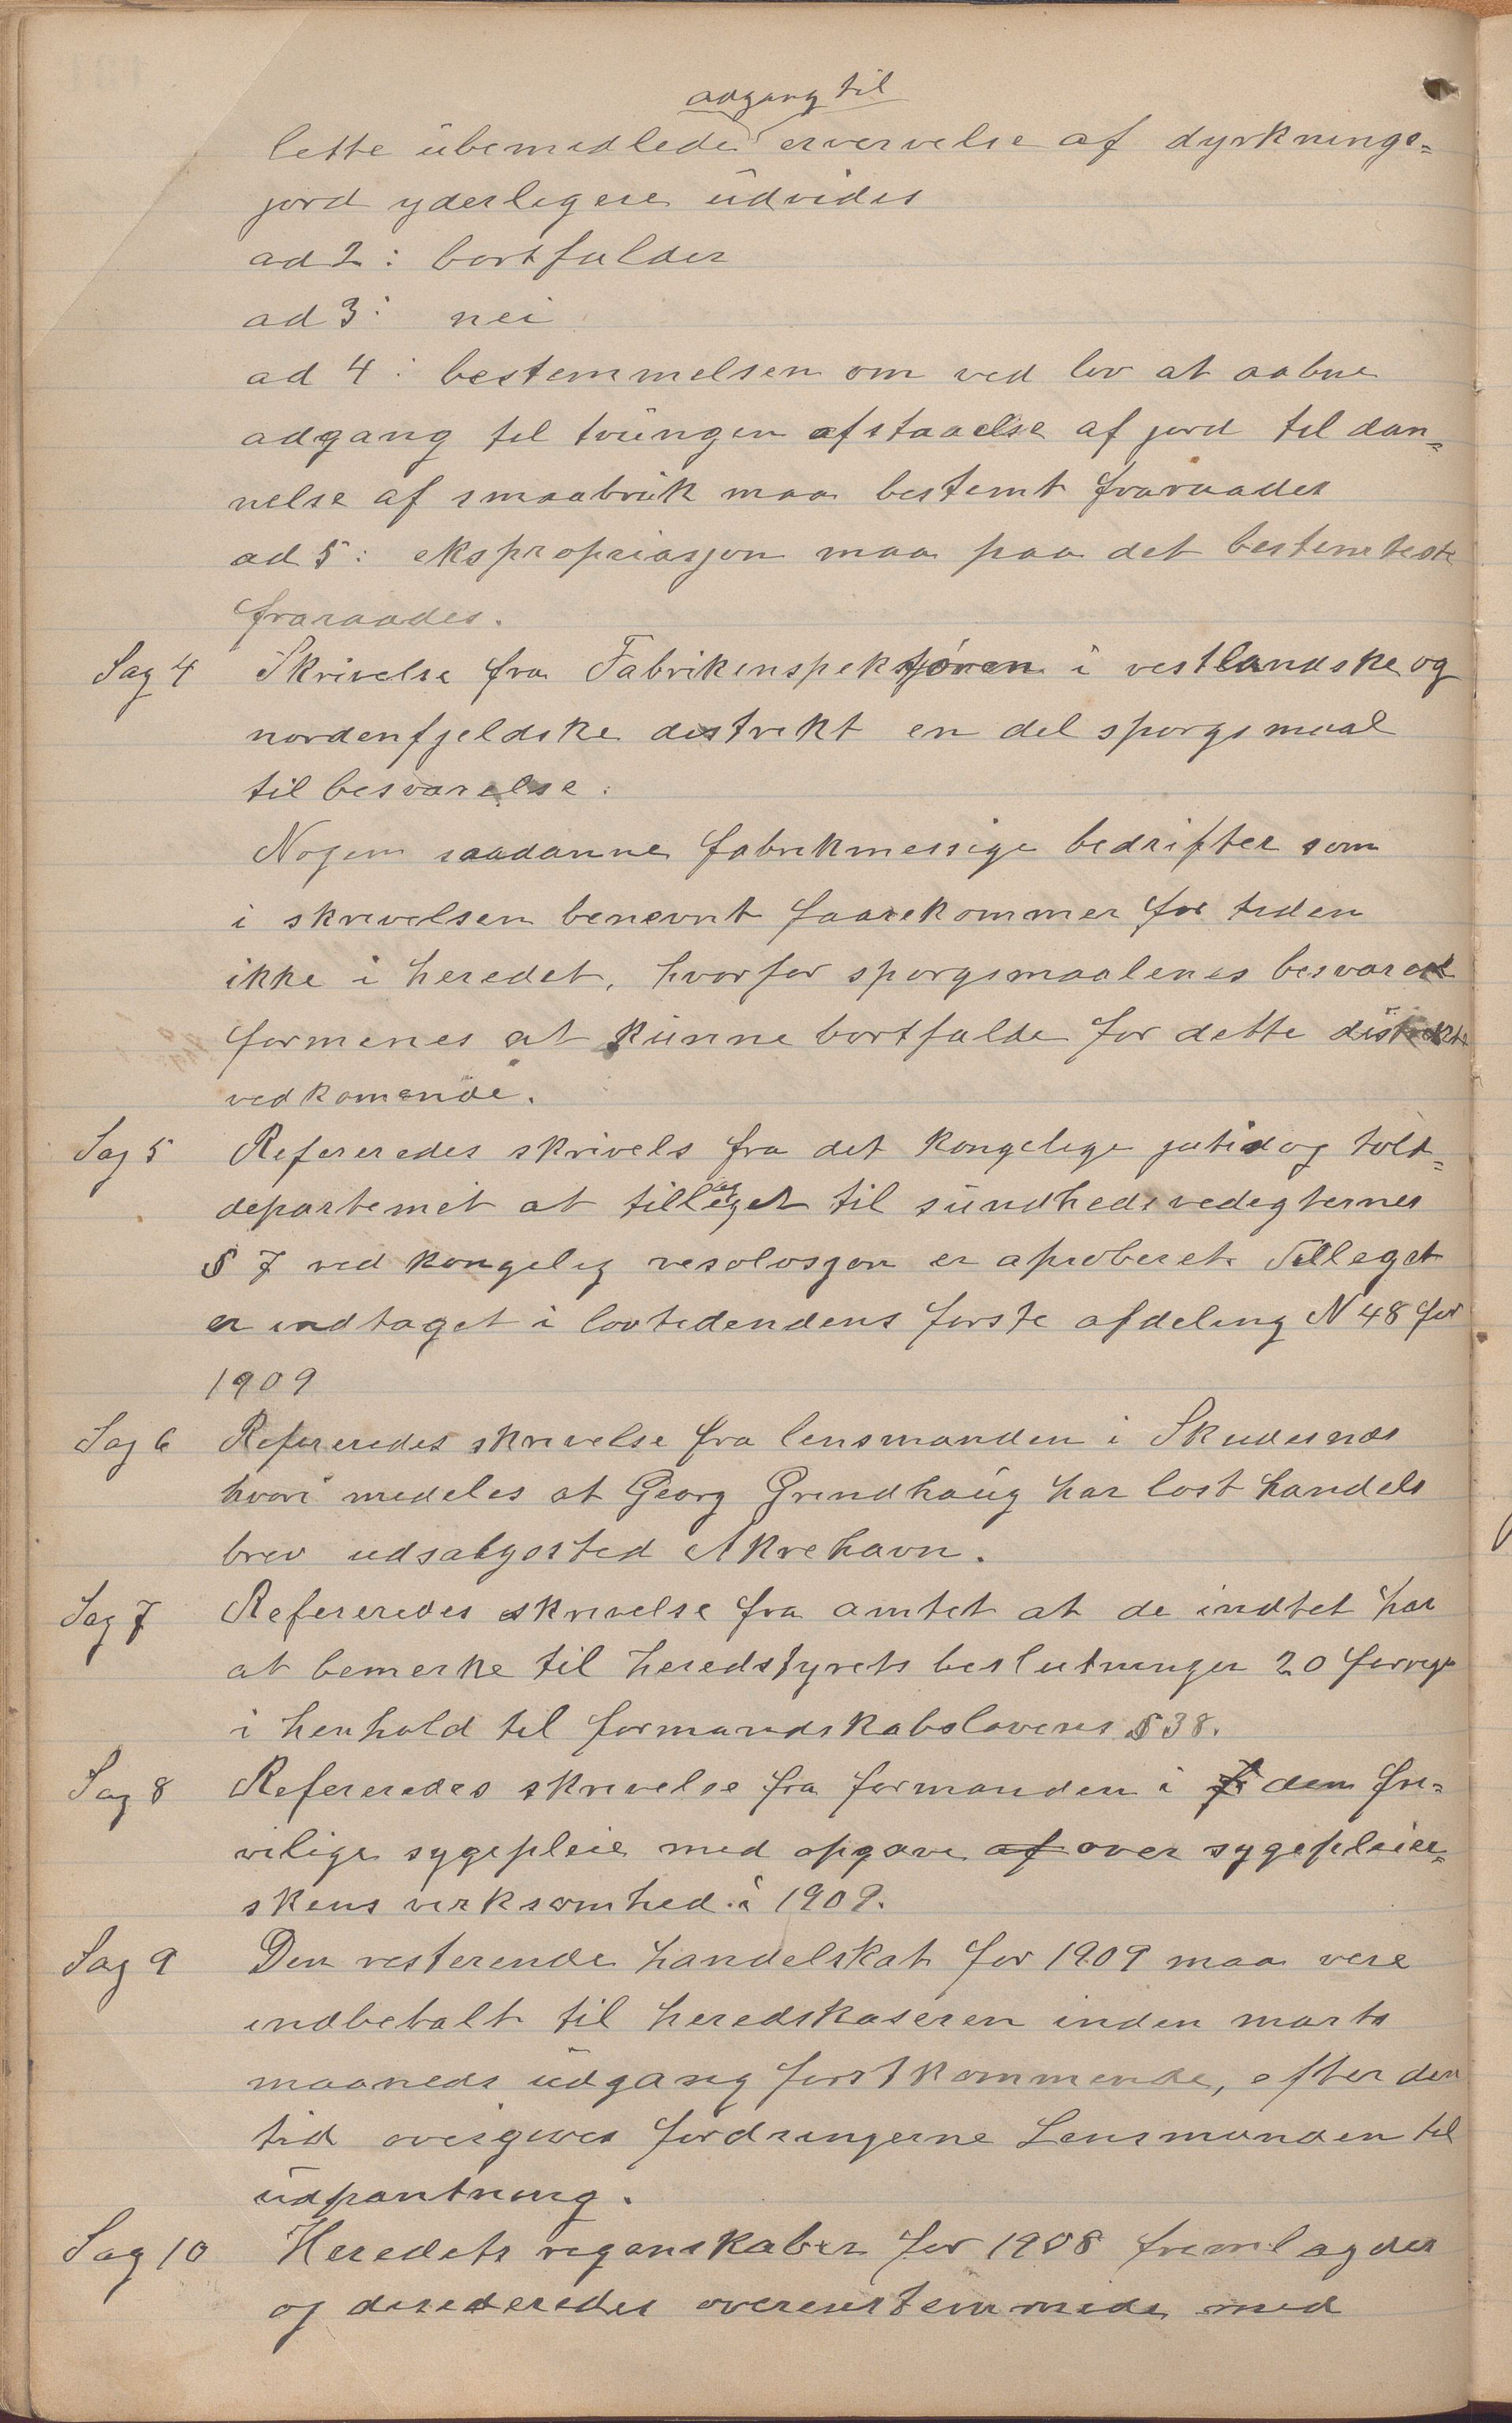 adgang til
lette ubemedlede ervervelse af dyrknings=
jord yderligere udvides
ad 2: bortfalder
ad 3: nei
ad 4: bestemmelsen om ved lov at aabne
adgang til tvungen afstaaelse af jord til dan=
nelse af smaabruk maa bestemt fraraades
ad 5: ekspropriasjon maa paa det bestemteste
fraraades.
Sag 4 Skrivelse fra Fabrikenspektøren i vestlandske og
nordenfjeldske distrikt en del sporgsmaal
til besvarelse.
Nogen saadanne fabrikmessige bedrifter som
i skrivelsen benevnt faarekommer for tiden
ikke i heredet, hvorfor sporgsmaalenes besvarelse
formenes at kunne bortfalde for dette distrekts
vedkomende.
Sag 5 Refereredes skrivels fra det kongelige justis og told=
departemet at tilleget til sundhedsvedegternes
§ 7 ved kongelig resolusjon er aproberet. Tilleget
er indtaget i lovtedendens forste afdeling N 48 for
1909
Sag 6 Refereredes skrivelse fra lensmanden i Skudesnes
hvori medeles at Georg Grindhaug har lost handels
brev udsalgssted Akrehavn.
Sag 7 Refereredes skrivelse fra amtet at de indtet har
at bemerke til heredstyrets beslutninger 20 forrige
i henhold til formandskabslovens § 38.
Sag 8 Refereredes skrivelse fra formanden i den fri=
vilige sygepleie med opgave af over sygepleier=
skens virksomhed i 1909.
Sag 9 Den resterende handelskat for 1909 maa vere
indbetalt til heredskaseren inden marts
maaneds udgang forstkommende, efter den
tid overgives fordringerne Lensmanden til
udpantning.
Sag 10 Heredets regnskaber for 1908 fremlagdes
og desideredes overenstemmende med